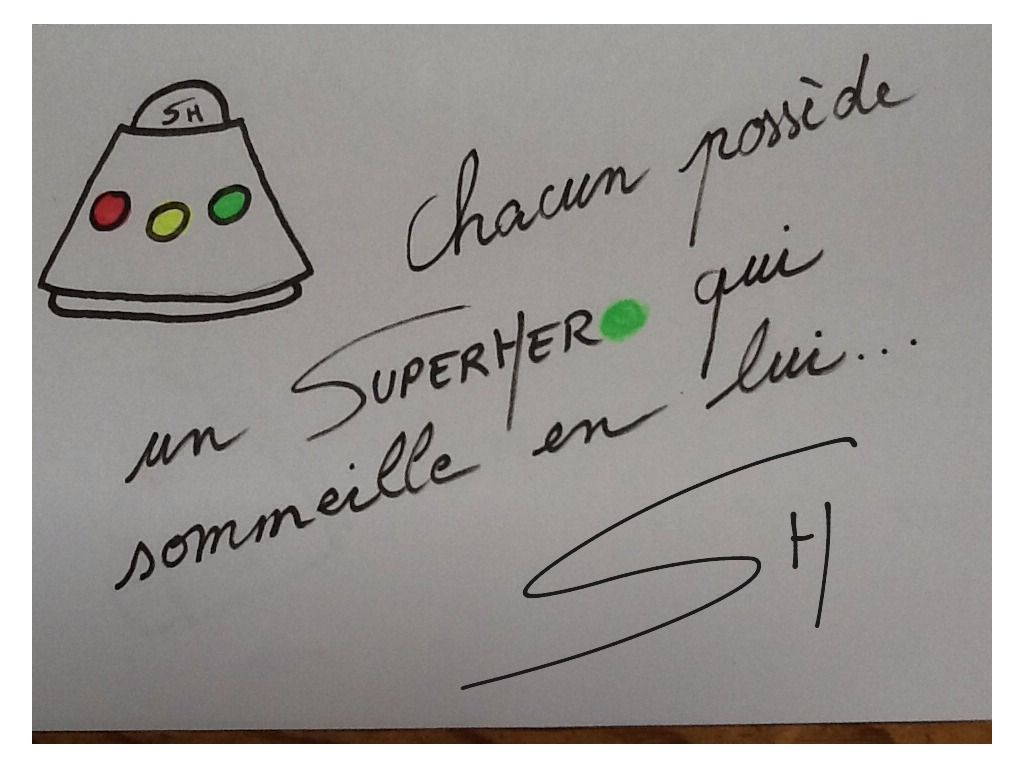 SH
Chacun possède
un SUPERHERO qui
sommeille en lui...
SH